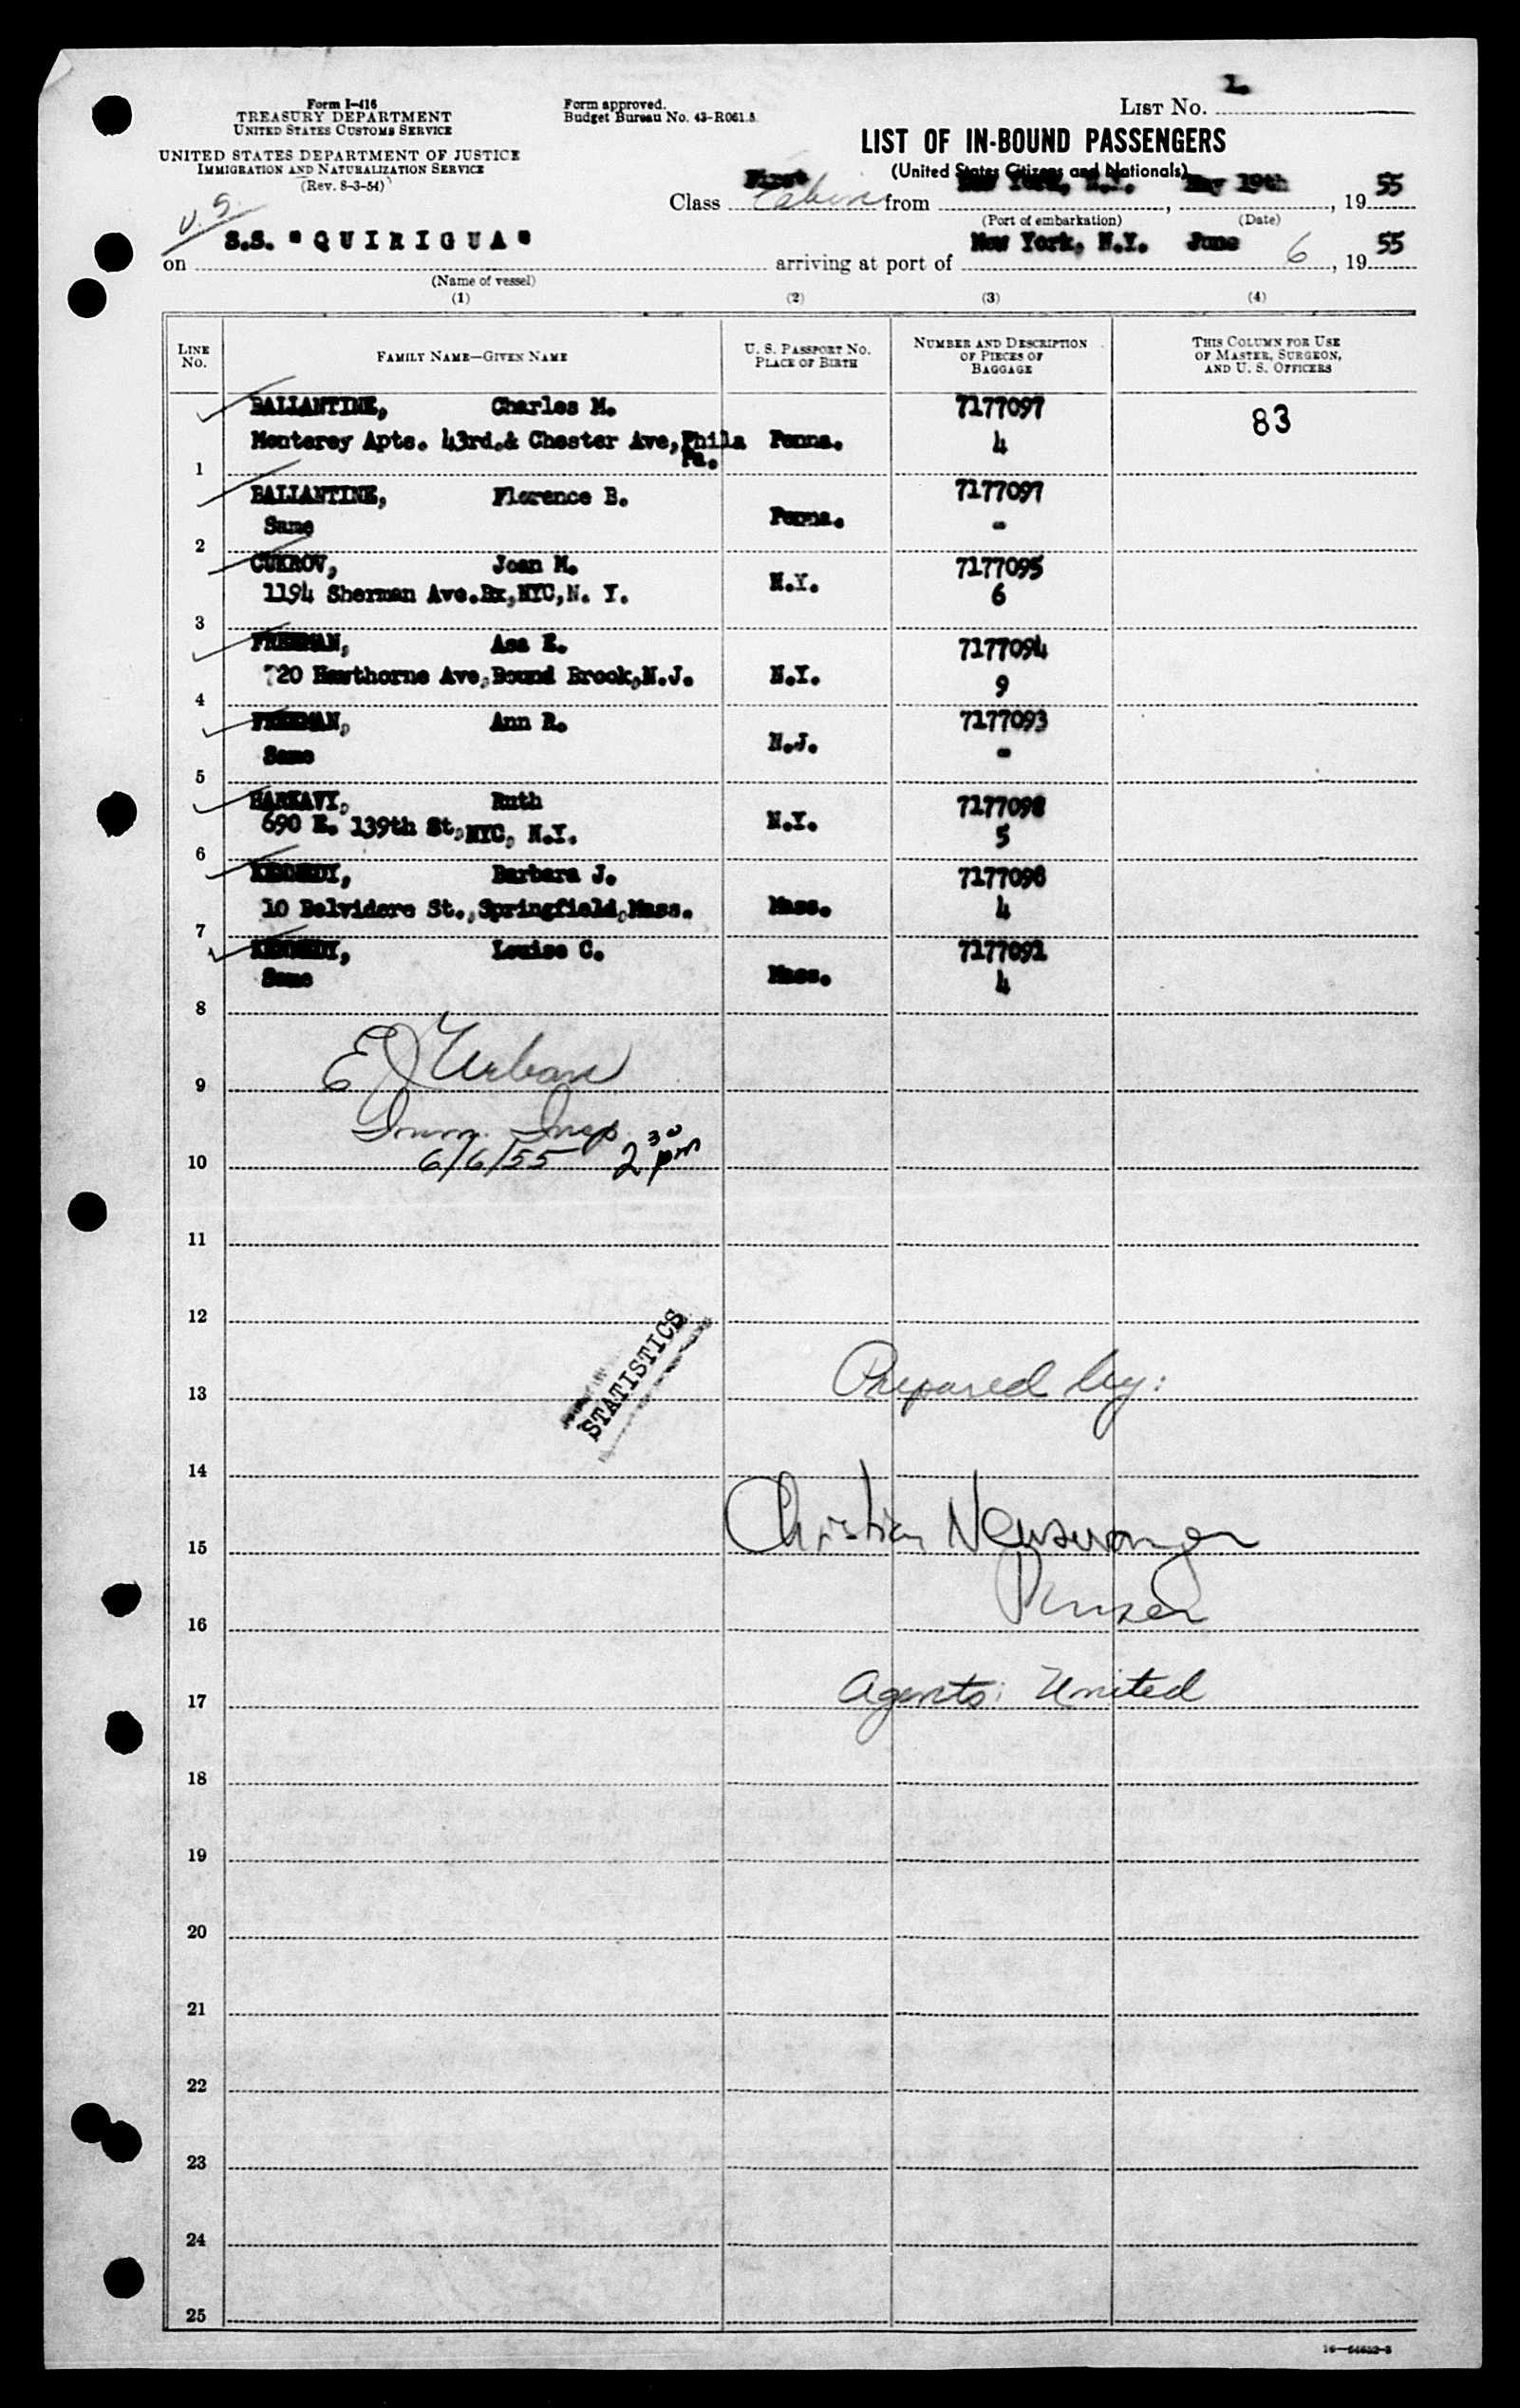 Form I-416
TREASURY DEPARTMENT
UNITED STATES CUSTOMS SERVICE
UNITED STATES DEPARTMENT OF JUSTICE
IMMIGRATION AND NATURALIZATION SERVICE
(Rev. 8-3-54)
Form approved.
Budget Bureau No. 43-R061.5
LIST No. 1.
LIST OF IN-BOUND PASSENGERS
(United States Citizens and Nationals)
Class First Cabin from New York, N.Y., May 19th, 1955
(Port of embarkation) (Date)
U.S.
on S.S. "QUIRIGUA" arriving at port of New York, N.Y. June 6, 1955
(Name of vessel)
(1) (2) (3) (4)
LINE No. FAMILY NAME—GIVEN NAME U. S. PASSPORT NO. PLACE OF BIRTH NUMBER AND DESCRIPTION OF PIECES OF BAGGAGE THIS COLUMN FOR USE OF MASTER, SURGEON, AND U. S. OFFICERS
BALLANTINE, Charles M. 7177097 83
Monterey Apts. 43rd.& Chester Ave, Phila Penna. 4
Pa.
1
BALLANTINE, Florence B. 7177097
Same Penna. -
2
CUKROV, Joan M. 7177095
1194 Sherman Ave.Bx,NYC,N. Y. N.Y. 6
3
FREEMAN, Asa E. 7177094
720 Hawthorne Ave,Bound Brook,N.J. N.Y. 9
4
FREEMAN, Ann R. 7177093
Same N.J. -
5
HARKAVY, Ruth 7177098
690 E. 139th St,NYC, N.Y. N.Y. 5
6
KENNEDY, Barbara J. 7177096
10 Belvidere St.,Springfield,Mass. Mass. 4
7
KENNEDY, Louise C. 7177091
Same Mass. 4
8
E J Urban
9
Imm. Insp.
6/6/55 2 30 pm
10
11
12
STATISTICS
Prepared by:
13
14
Christian Neuswanger
15
Purser
16
Agents: United
17
18
19
20
21
22
23
24
25